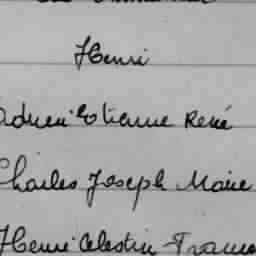 Henri
Adrien Etienne René
Charles Joseph Marie
Henri Celestin